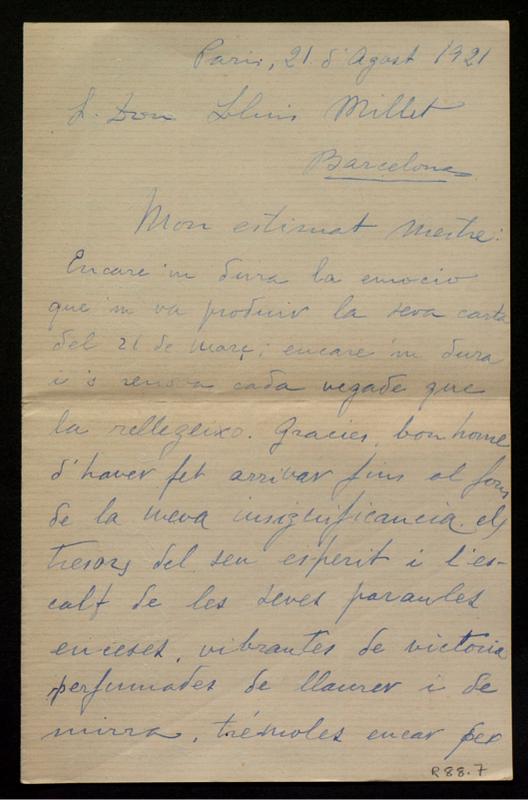 Paris, 21 d'Agost 1921
S. Don Lluis Millet
Barcelona
Mon estimat Mestre:
Encare'm dura la emoció
que'm va produir la seva carta
del 21 de Març; encare'm dura
i's renova cada vegade que
la rellegeixo. Gracies, bon home
d'haver fet arrivar fins al fons
de la meva insignificancia els
tresors del seu esperit i l'es-
calf de les seves paraules
enceses, vibrantes de victoria
perfumades de llaurer i de
mirra, trémoles encar per
R88.7